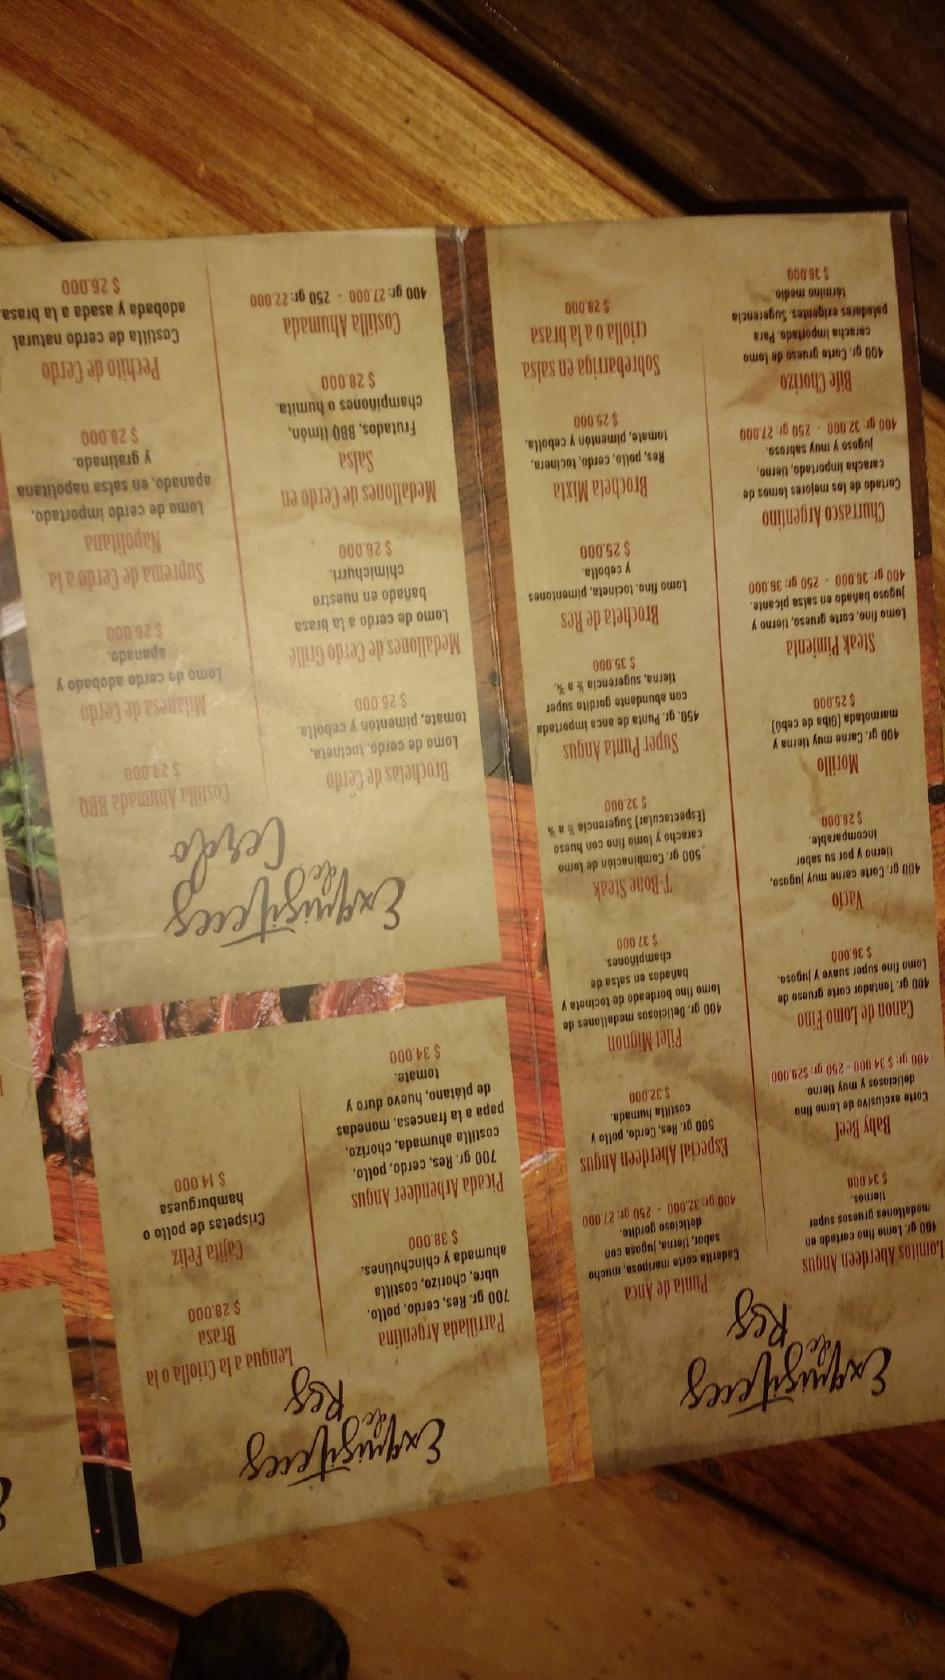 Exquisiteces
de
Res
Lomitos Aberdeen Angus
400 gr. Lomo fino cortado en
medallones gruesos super
tiernos.
$ 34.000
Baby Beef
Corte exclusivo de Lomo fino
delicioso y muy tierno.
400 gr: $ 34.000 - 250 gr: $29.000
Cañon de Lomo Fino
400 gr. Tentador corte grueso de
Lomo fino super suave y jugoso.
$ 36.000
Vacío
400 gr. Corte carne muy jugoso,
tierno y por su sabor
incomparable.
$ 26.000
Morillo
400 gr. Carne muy tierna y
marmolada (Giba de cebú)
$ 25.000
Steak Pimienta
Lomo fino, corte grueso, tierno y
jugoso bañado en salsa picante.
400 gr: 36.000 - 250 gr: 36.000
Churrasco Argentino
Cortado de los mejores lomos de
caracha importado, tierno,
jugoso y muy sabroso.
400 gr: 32.000 - 250 gr: 27.000
Bife Chorizo
400 gr. Corte grueso de lomo
caracha importado. Para
paladares exigentes. Sugerencia
término medio
$ 36.000
Punta de Anca
Caderita corte mariposa, mucho
sabor, tierna, jugosa con
delicioso gordito.
400 gr: 32.000 - 250 gr: 27.000
Especial Aberdeen Angus
500 gr. Res, Cerdo, pollo y
costilla humada.
$ 32.000
Filet Mignon
400 gr. Deliciosos medallones de
lomo fino bordeado de tocineta y
bañados en salsa de
champiñones.
$ 37.000
T-Bone Steak
500 gr. Combinación de lomo
caracho y lomo fino con hueso
(Espectacular) Sugerencia ½ a ¾
$ 32.000
Super Punta Angus
450. gr. Punta de anca importada
con abundante gordito super
tierna, sugerencia ½ a ¾.
$ 35.000
Brocheta de Res
Lomo fino, tocineta, pimentones
y cebolla.
$ 25.000
Brocheta Mixta
Res, pollo, cerdo, tocineta,
tomate, pimentón y cebolla.
$ 25.000
Sobrebarriga en salsa
criolla o a la brasa
$ 28.000
Exquisiteces
de
Res
Lengua a la Criolla o la
Brasa
$ 28.000
Cajita Feliz
Crispetas de pollo o
hamburguesa
$ 14.000
Parrillada Argentina
700 gr. Res, cerdo, pollo,
ubre, chorizo, costilla
ahumada y chinchulines.
$ 38.000
Picada Arbendeer Angus
700 gr. Res, cerdo, pollo,
costilla ahumada, chorizo,
papa a la francesa, monedas
de plátano, huevo duro y
tomate.
$ 34.000
Exquisiteces
de
Cerdo
Brochetas de Cerdo
Lomo de cerdo, tocineta,
tomate, pimentón y cebolla.
$ 25.000
Medallones de Cerdo Grillé
Lomo de cerdo a la brasa
bañado en nuestro
chimichurri.
$ 26.000
Medallones de Cerdo en
Salsa
Frutados, BBQ limón,
champiñones o humita.
$ 28.000
Costilla Ahumada
400 gr: 27.000 - 250 gr: 22.000
Costilla Ahumada BBQ
$ 28.000
Milanesa de Cerdo
Lomo de cerdo adobado y
apanado.
$ 26.000
Suprema de Cerdo a la
Napolitana
Lomo de cerdo importado,
apanado, en salsa napolitana
y gratinado.
$ 28.000
Pechito de Cerdo
Costilla de cerdo natural
adobada y asada a la brasa.
$ 26.000